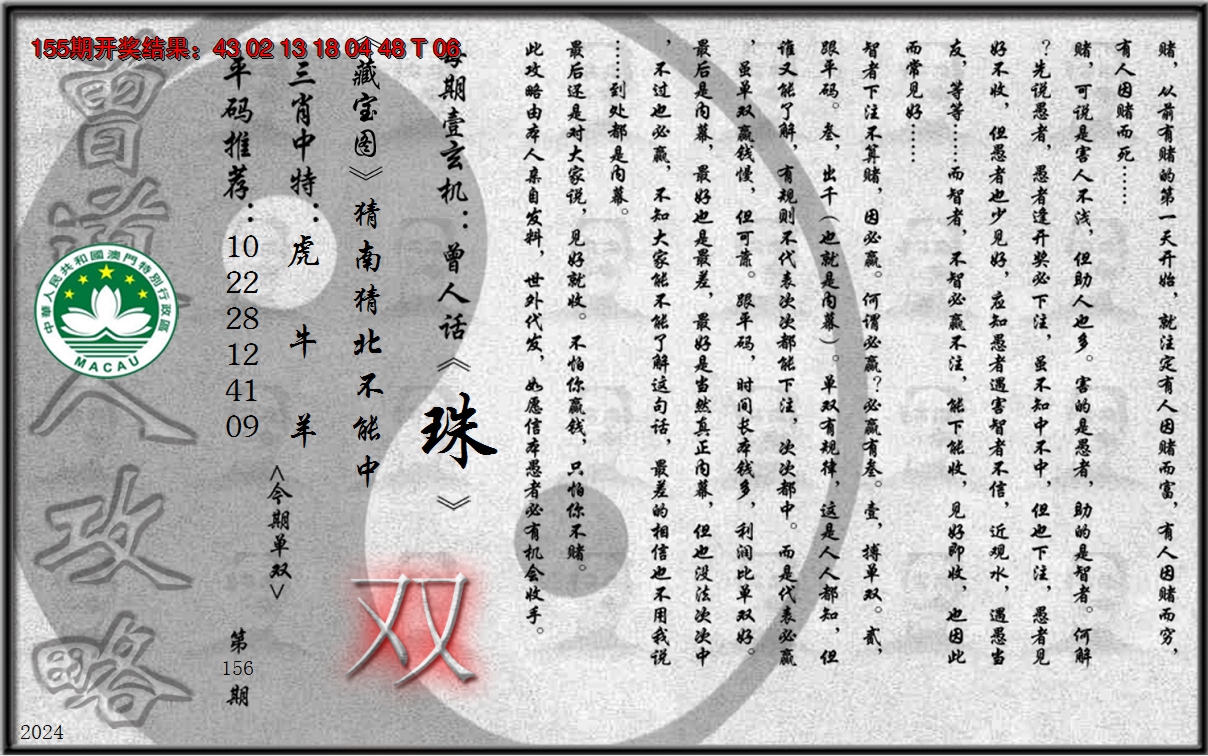 155期开奖结果：43 02 13 18 04 48 T 06
赌，从前有赌的第一天开始，就注定有人因赌而富，有人因赌而穷，
有人因赌而死……
赌，可说是害人不浅，但助人也多。害的是愚者，助的是智者。何解
？先说愚者，愚者逢开奖必下注，虽不知中不中，但也下注，愚者见
好不收，但愚者也少见好，应知愚者遇害智者不信，近观水，遇愚当
友，等等……而智者，不智必赢不注，能下能收，见好即收，也因此
而常见好……
智者下注不算赌，因必赢。何谓必赢？必赢有叁。壹，搏单双。贰，
跟平码。叁，出千（也就是内幕）。单双有规律，这是人人都知，但
谁又能了解，有规则不代表次次都能下注，次次都中。而是代表必赢
，虽单双赢钱慢，但可靠。跟平码，时间长本钱多，利润比单双好。
最后是内幕，最好也是最差，最好是当然真正内幕，但也没法次次中
，不过也必赢，不知大家能不能了解这句话，最差的相信也不用我说
……到处都是内幕。
最后还是对大家说，见好就收。不怕你赢钱，只怕你不赌。
此攻略由本人亲自发料，世外代发，如愿信本愚者必有机会收手。
每期壹玄机：曾人话《珠》
《藏宝图》猜南猜北不能中
双
三肖中特：虎 牛 羊
<今期单双>
平码推荐：
10
22
28
12
41
09
第
156
期
曾道人攻略
中華人民共和國澳門特別行政區
MACAU
2024